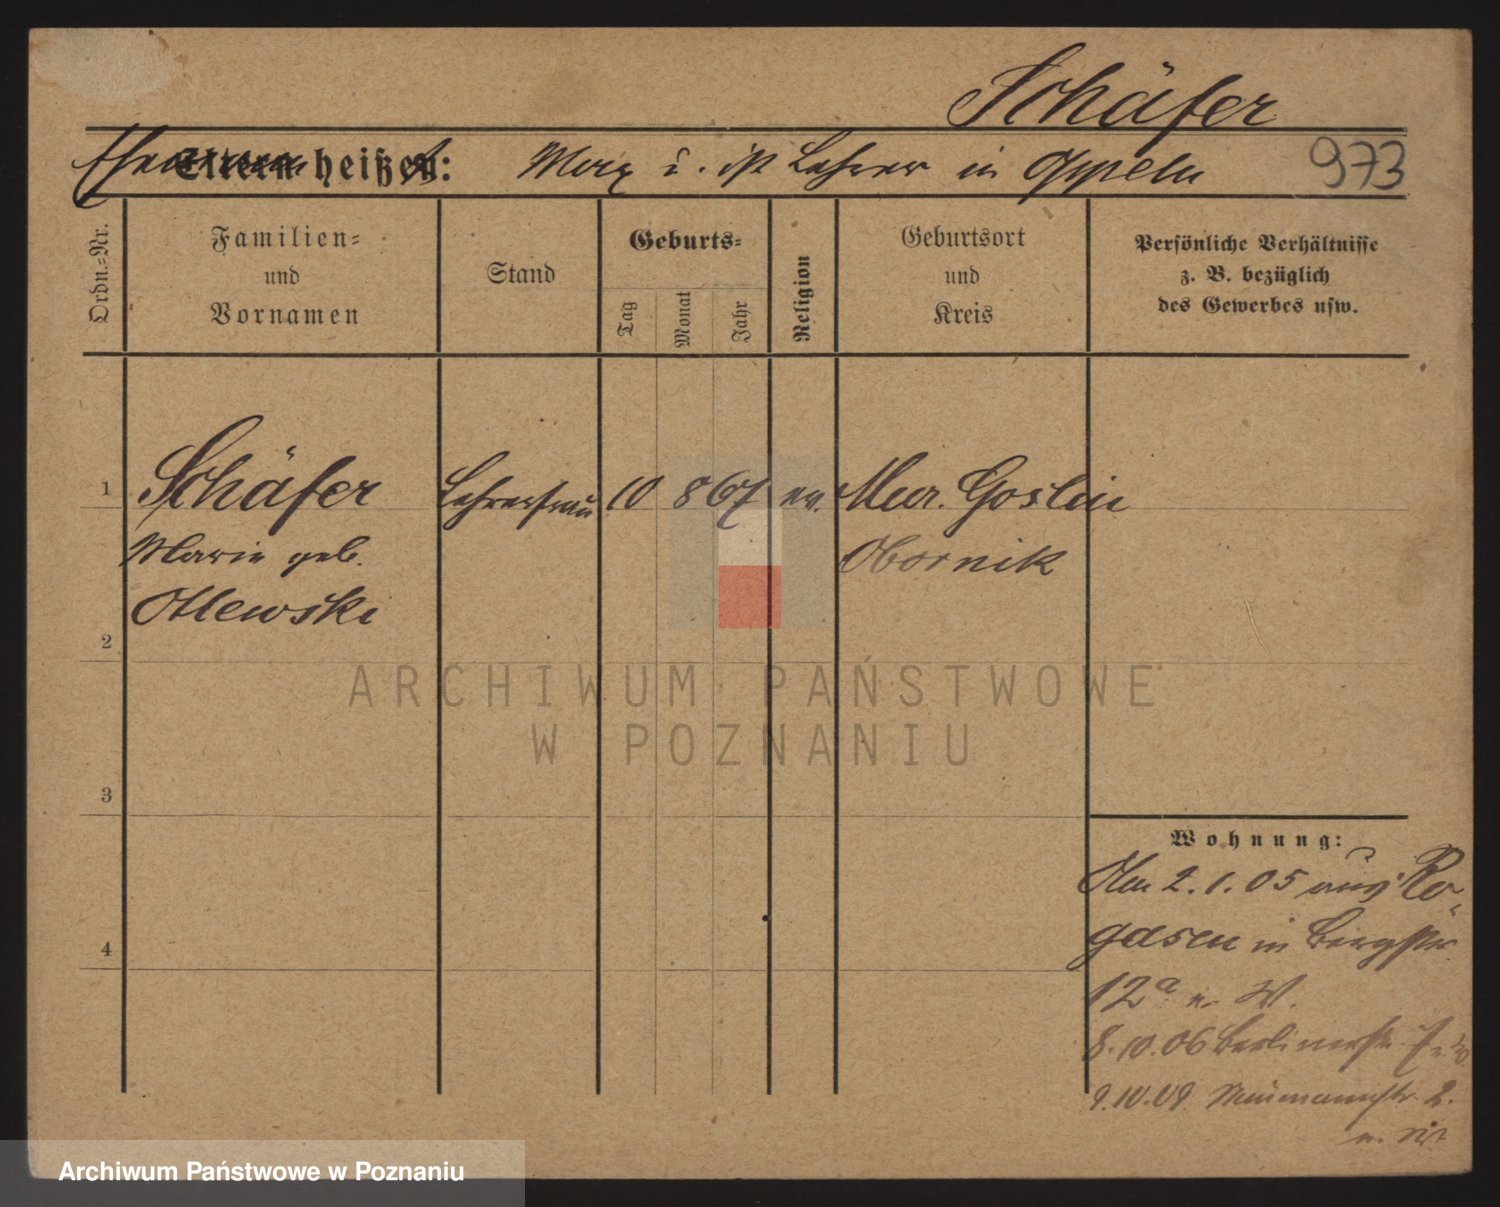 Schäfer
Ehemann heißt: Max u. ist Lehrer in Oppeln 973
Ordn.-Nr.
Familien-
und
Vornamen
Stand
Geburts-
Tag
Monat
Jahr
Religion
Geburtsort
und
Kreis
Persönliche Verhältnisse
z. B. bezüglich
des Gewerbes usw.
1 Schäfer Lehrerfrau 10 8 67 ev. Mur. Goslin
Marie geb. Obornik
Ottewski
2
3
4
ARCHIWUM PAŃSTWOWE
W POZNANIU
Wohnung:
Am 2.1.05 aus Ro-
gasen in Bergstr.
12a n. W.
8.10.06 Berlinerstr. 7
9.10.09 Naumannstr. 2.
Archiwum Państwowe w Poznaniu